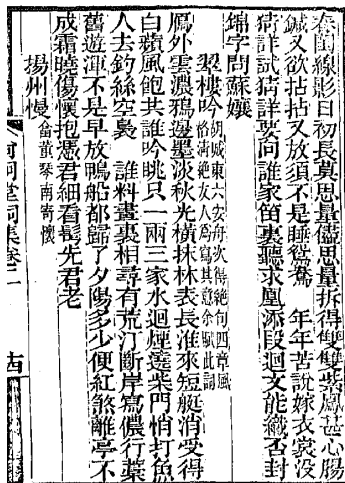 奩閨線影日初長莫思量儘思量拆得雙雙紫鳳甚心腸
鍼又欲拈拈又放須不是睡鴛鴦　年年苦說嫁衣裳沒
猜詳試猜詳要問誰家笛裏聽求凰添段迴文能織否封
錦字問蘇孃
翠樓吟胡城東六安舟次得絶句四章風
格清絶友人爲寫其意余賦此詞
鴈外雲濃鴉邊墨淡秋光橫抹林表長淮來短艇消受得
白蘋風飽共誰吟眺只一兩三家水迴煙遶柴門悄打魚
人去釣絲空裊　誰料畫裏相尋有荒汀斷岸寫儂行藁
舊遊渾不是早放鴨船都歸了夕陽多少便紅煞離亭不
成霜曉傷懷抱憑君細看鬢先君老
揚州慢龠董琴南寄懷
詞集卷二
十四